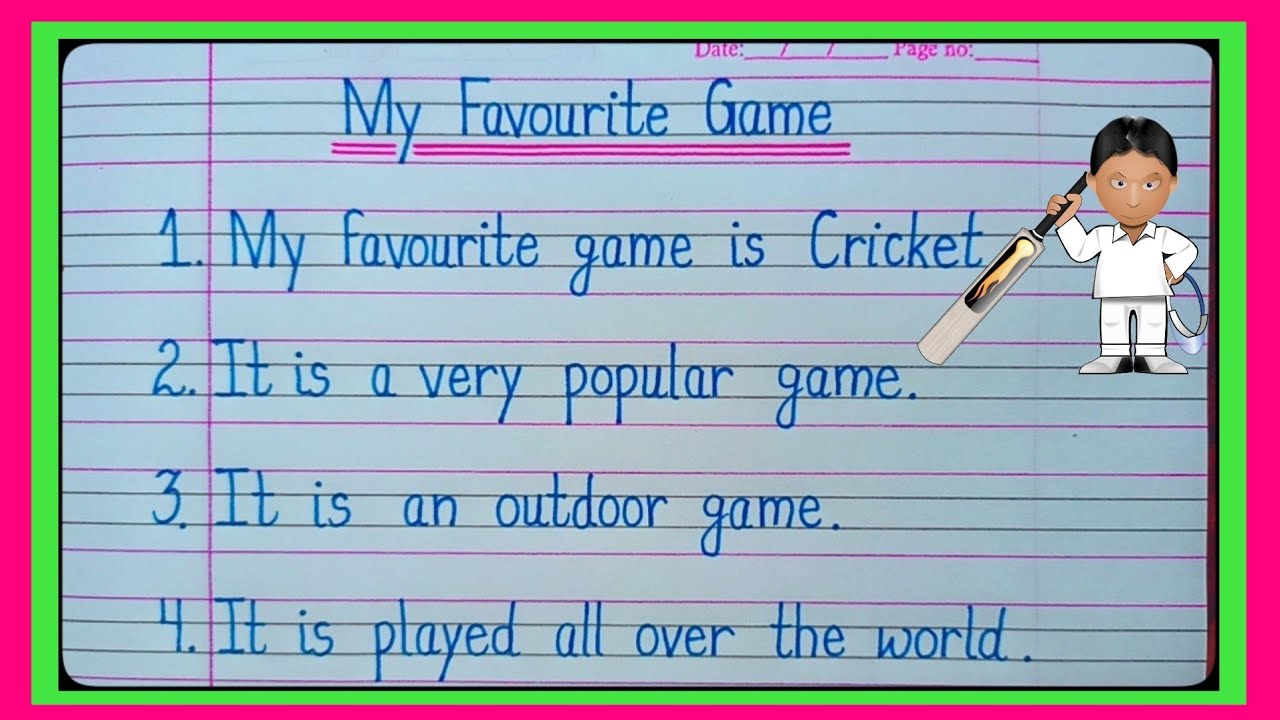 Date:___/___/_____ Page no:_____
My Favourite Game
1. My favourite game is Cricket
2. It is a very popular game.
3. It is an outdoor game.
4. It is played all over the world.